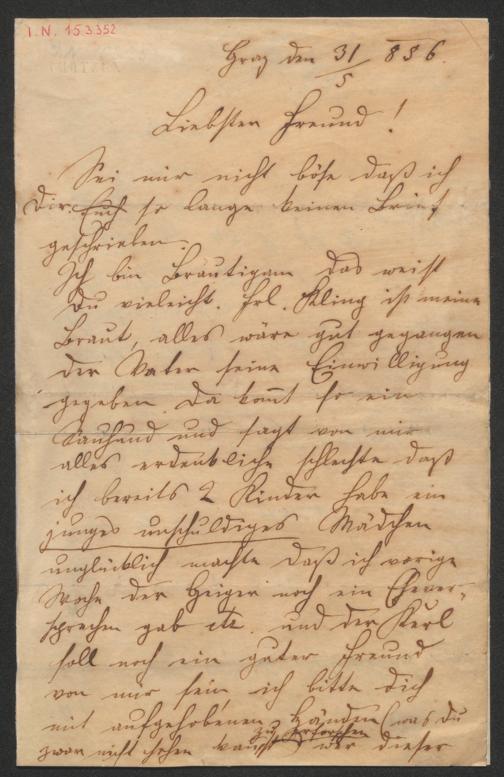 I.N. 153.352
Graz den 31/5 886.
Liebster Freund!
Sei mir nicht böse daß ich
Dir Euch so lange keinen Brief
geschrieben.
Ich bin Bräutigam das weist
Du vieleicht. Frl. Kling ist meine
Braut, alles wäre gut gegangen
der Vater seine Einwilligung
gegeben. Da komt so ein
Sauhund und sagt von mir
alles erdenkliche schlechte daß
ich bereits 2 Kinder habe ein
junges unschuldiges Mädchen
unglücklich machte daß ich vorige
Woche der Geiger noch ein Ehever-
sprechen gab etc. und der Kerl
soll noch ein guter Freund
von mir sein, ich bitte Dich
mit aufgehobenen Händen (was Du
zwar nicht sehen kannst) zu erforschen wer dieser